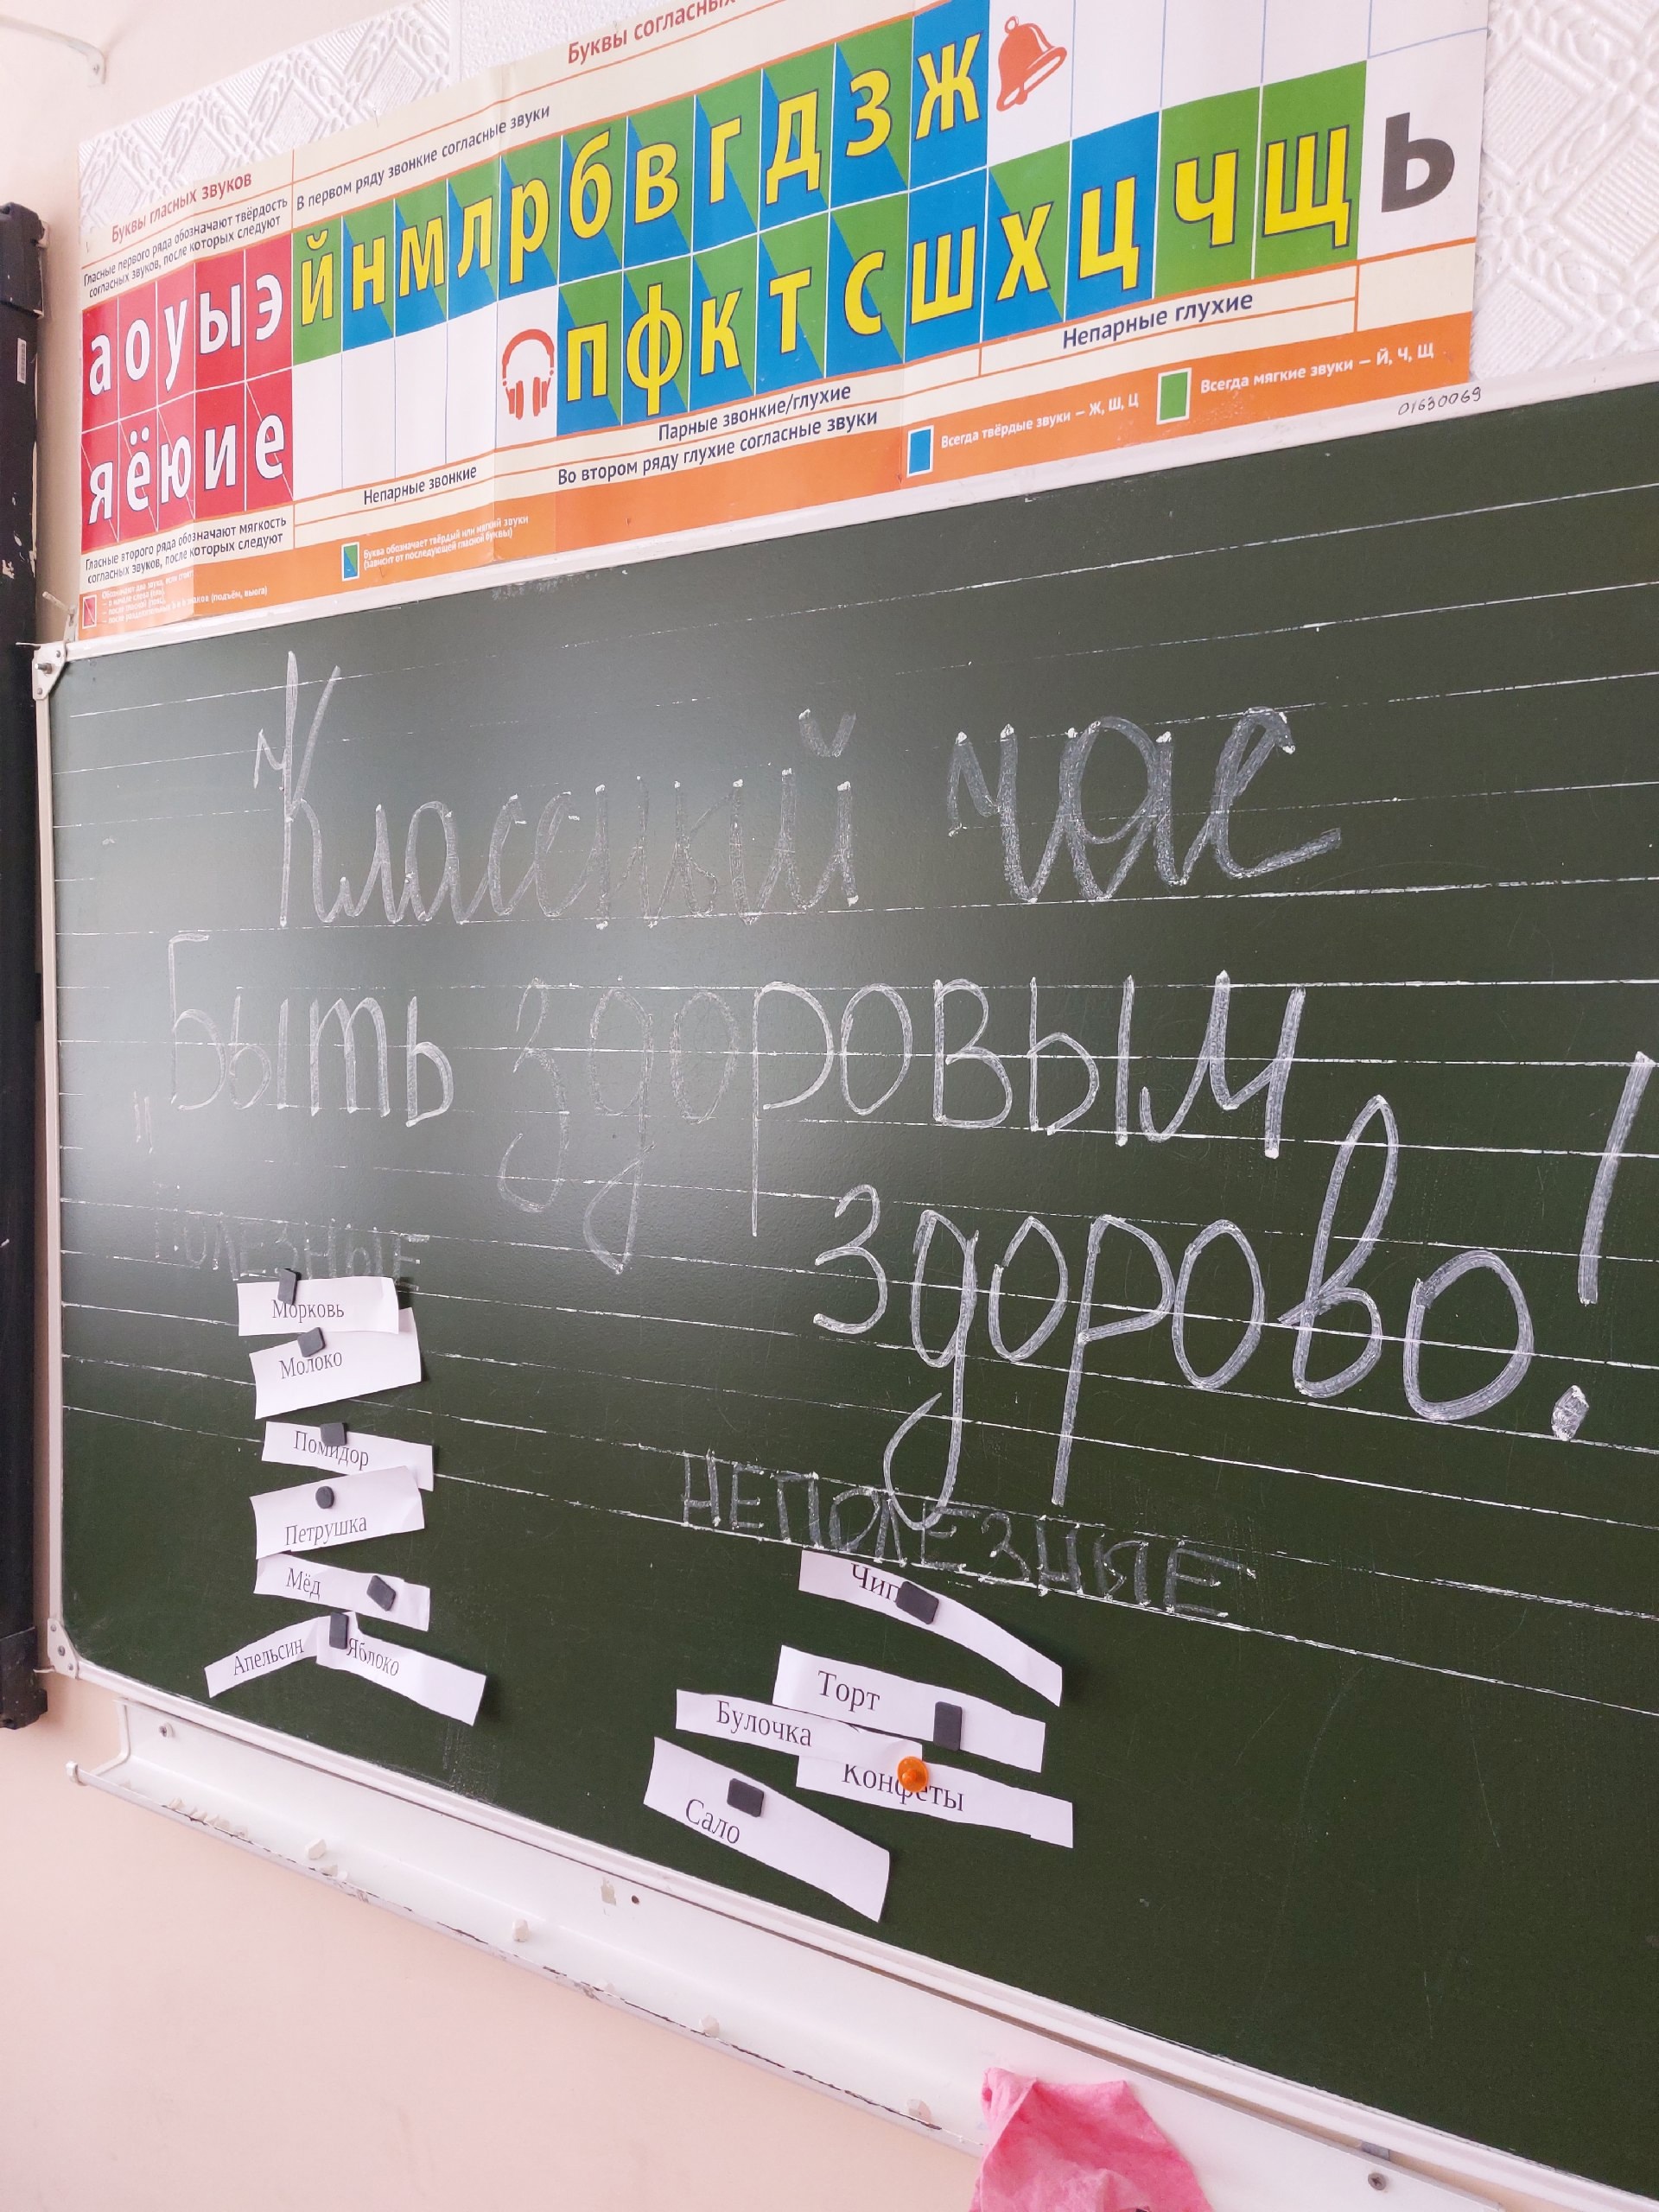 Буквы согласных
Буквы гласных звуков
Гласные первого ряда обозначают твёрдость
согласных звуков, после которых следуют
В первом ряду звонкие согласные звуки
й н м л р б в г д з ж
а о у ы э
п ф к т с ш х ц ч щ ь
я ё ю и е
Непарные звонкие
Парные звонкие/глухие
Непарные глухие
Во втором ряду глухие согласные звуки
Гласные второго ряда обозначают мягкость
согласных звуков, после которых следуют
Буква обозначает твёрдый или мягкий звуки
(зависит от последующей гласной буквы)
Всегда твёрдые звуки — Ж, Ш, Ц
Всегда мягкие звуки — Й, Ч, Щ
01630069
Классный час
„Быть здоровым
здорово!
ПОЛЕЗНЫЕ
Морковь
Молоко
Помидор
Петрушка
Мёд
Апельсин
Яблоко
НЕПОЛЕЗНЫЕ
Чип
Торт
Булочка
Конфеты
Сало